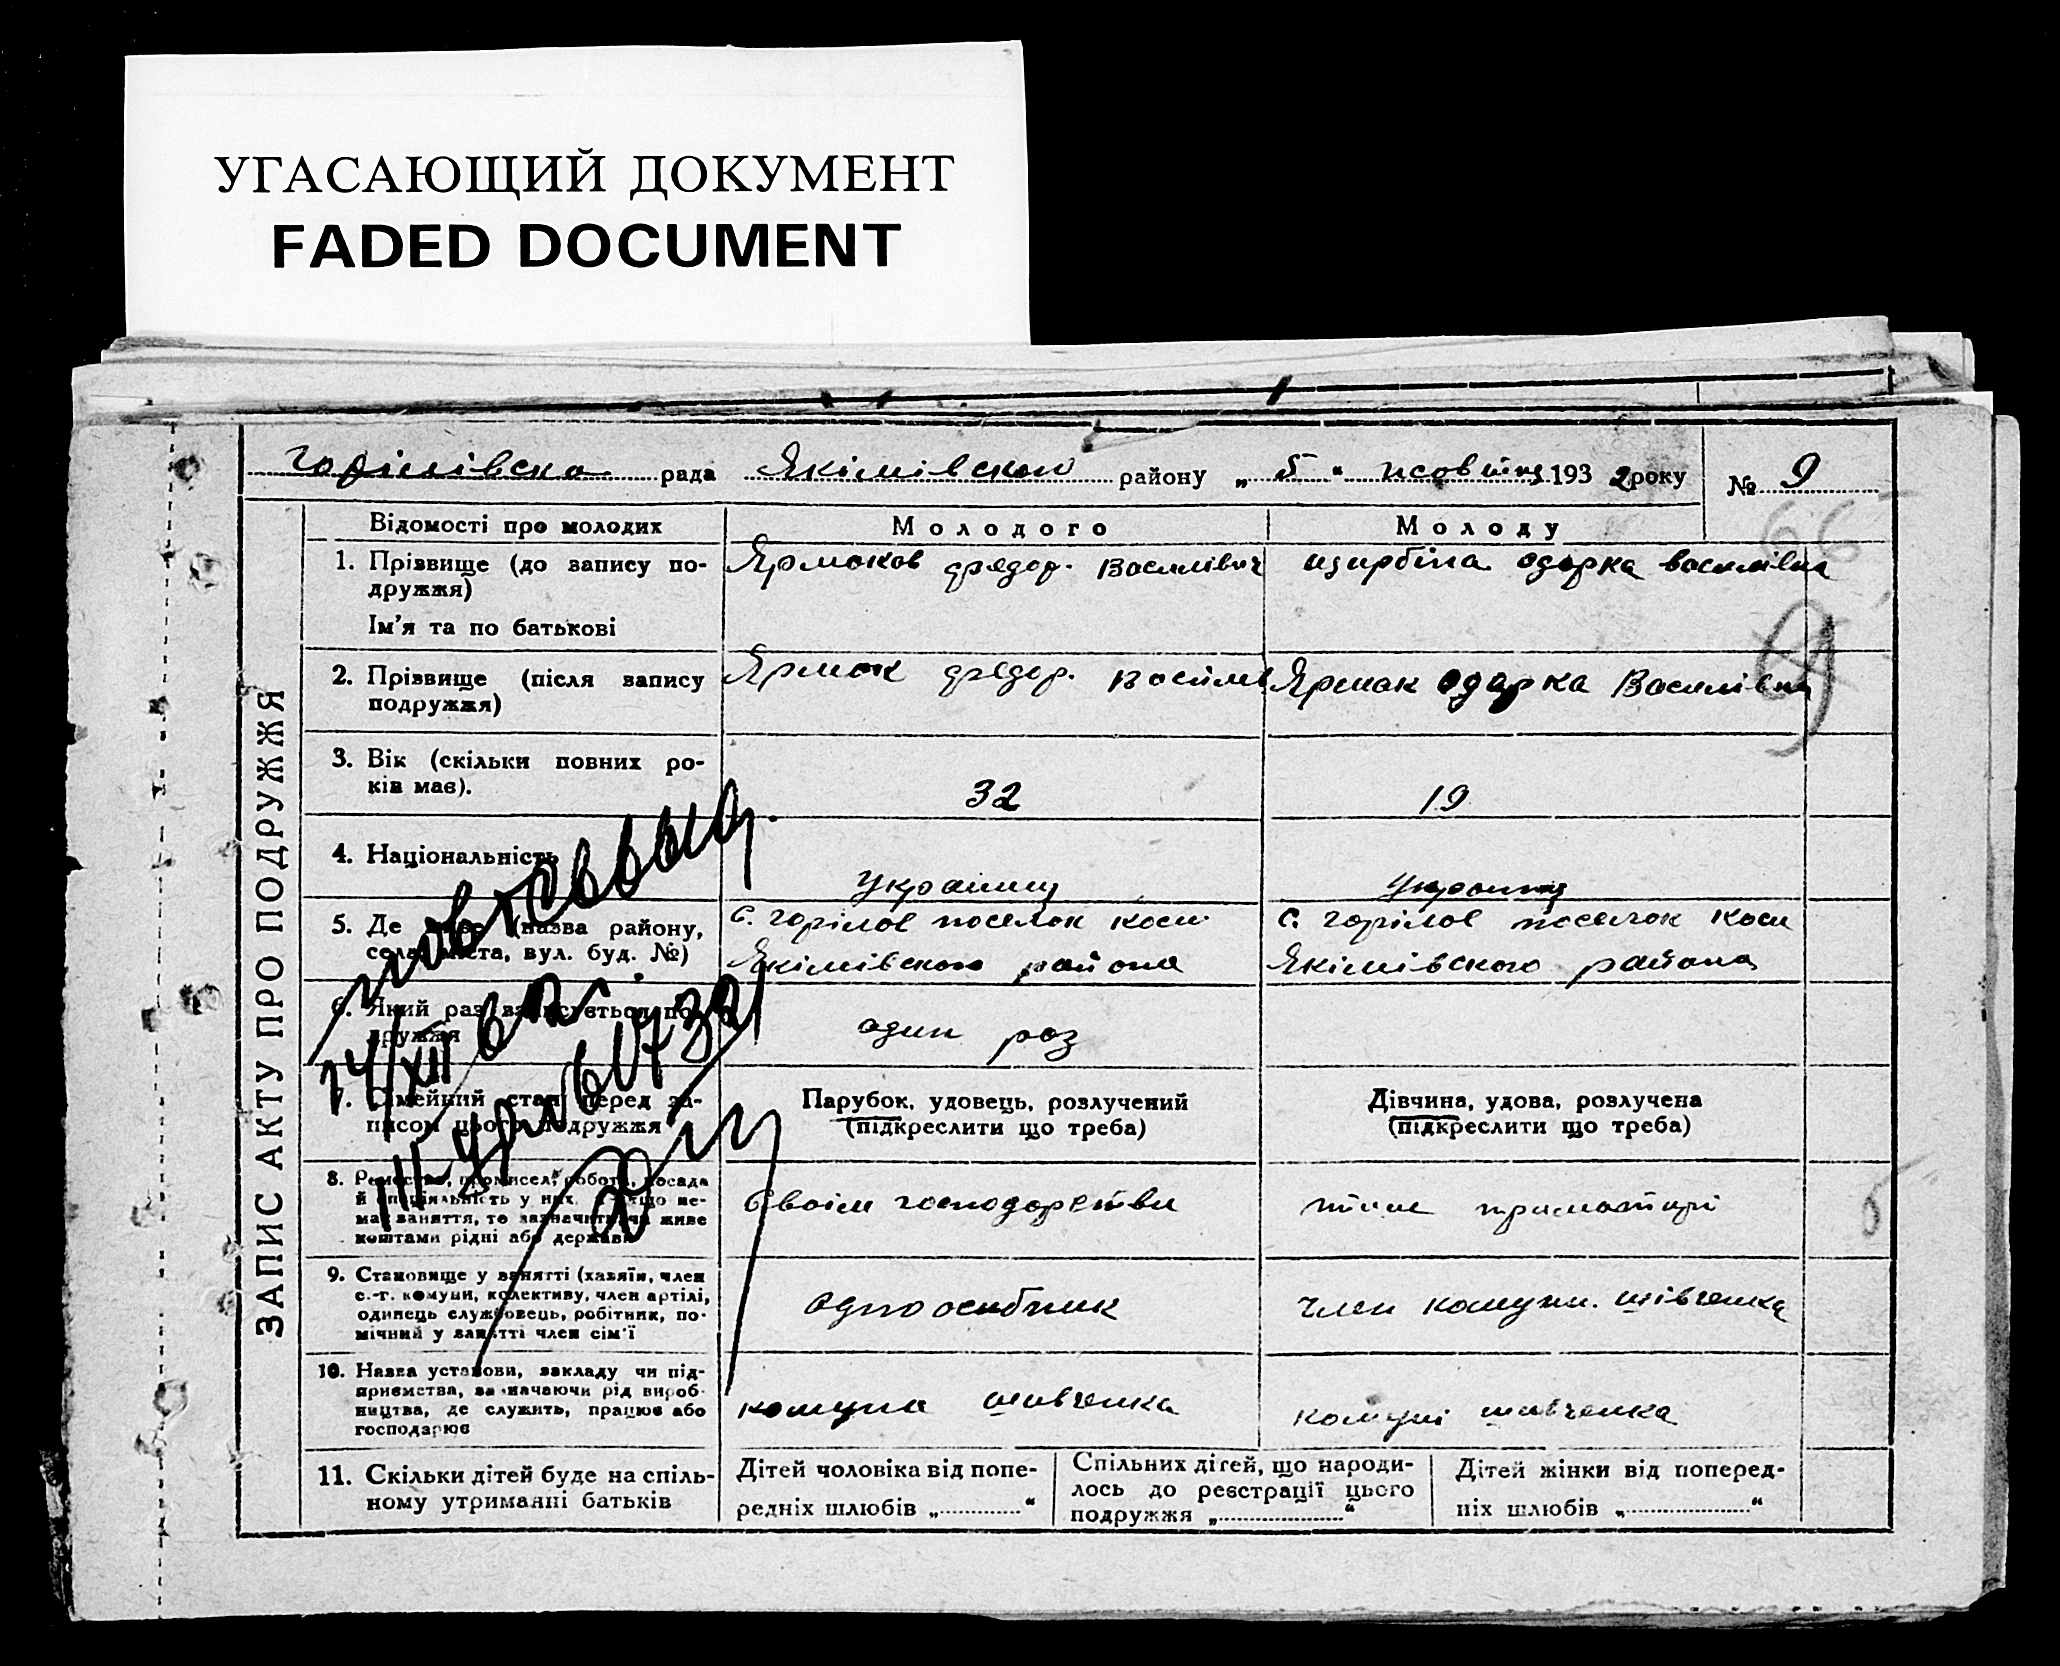 УГАСАЮЩИЙ ДОКУМЕНТ
FADED DOCUMENT
горілівска рада Якімівскои району „ 5 " жовтня 1932 року № 9
ЗАПИС АКТУ ПРО ПОДРУЖЖЯ
Відомості про молодих Молодого Молоду
66
1. Прізвище (до запису по-
дружжя)
Ім'я та по батькові
Ярмаков федор. Василівич
щирбина одарка василівна
9
2. Прізвище (після запису
подружжя)
Ярмак федор. Василів
Ярмак Одарка Василівна
3. Вік (скільки повних ро-
ків має).
32
19
4. Національність
Україниц
Україниц
5. Де живе (назва району,
села, міста, вул. буд. №)
с. горілов поселок косм
Якімівского района
с. горілов поселок косм
Якімівского района
6. Який раз записується по-
дружжя
один раз
14/XII
1932
7. Сімейний стан перед за-
писом цього подружжя
Парубок, удовець, розлучений
(підкреслити що треба)
Дівчина, удова, розлучена
(підкреслити що треба)
8. Ремество, промисел, робота, посада
й спеціяльність у них. Якщо не-
має заняття, то зазначити чи живе
коштами рідні або держави
Своім господарстви
при матирі
9. Становище у занятті (хазяїн, член
с.-г. комуни, колективу, член артілі,
одинець службовець, робітник, по-
мічний у занятті член сім'ї
одноосибник
член комуни. шівченка
10. Назва установи, закладу чи під-
приємства, зазначаючи рід вироб-
ництва, де служить, працює або
господарює
комуна шивченка
комуні шивченка
11. Скільки дітей буде на спіль-
ному утриманні батьків
Дітей чоловіка від попе-
редніх шлюбів „ "
Спільних дітей, що народи-
лось до реєстрації цього
подружжя „ "
Дітей жінки від поперед-
ніх шлюбів „ "